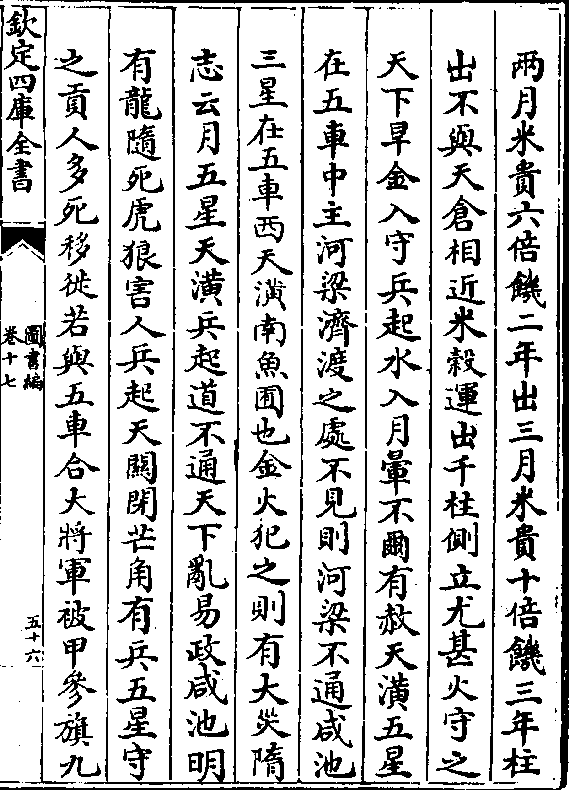 兩月米貴六倍饑二年出三月米貴十倍饑三年柱
出不與天倉相近米榖運出千柱側立尤甚火守之
天下旱金入守兵起水入月暈不爾有赦天潢五星
在五車中主河梁濟渡之處不見則河梁不通咸池
三星在五車西天潢南魚囿也金火犯之則有大災隋
志云月五星天潢兵起道不通天下亂易政咸池明
有龍隨死虎狼害人兵起天闗閉芒角有兵五星守
之貢人多死移徙若與五車合大將軍被甲參旗九
欽定四庫全書
圖書編
卷十七
五十六